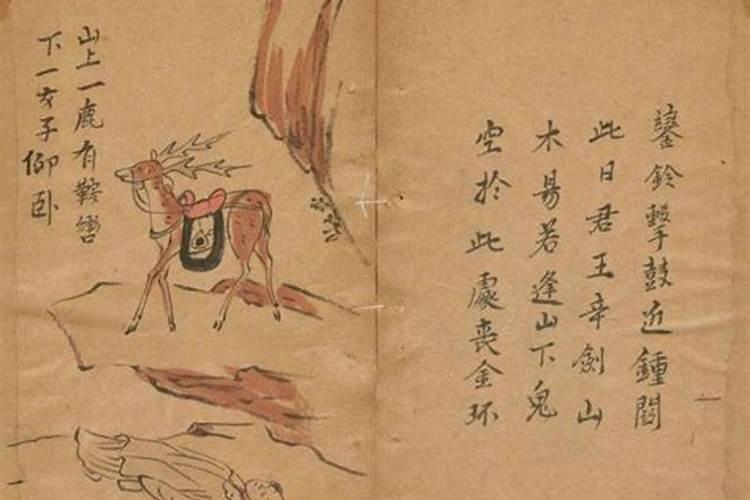 鑾鈴擊鼓近鍾
此日君王幸劍山
木易若逢山下鬼
空於此處喪金环
山上一鹿有鞍轡
下一女子仰卧